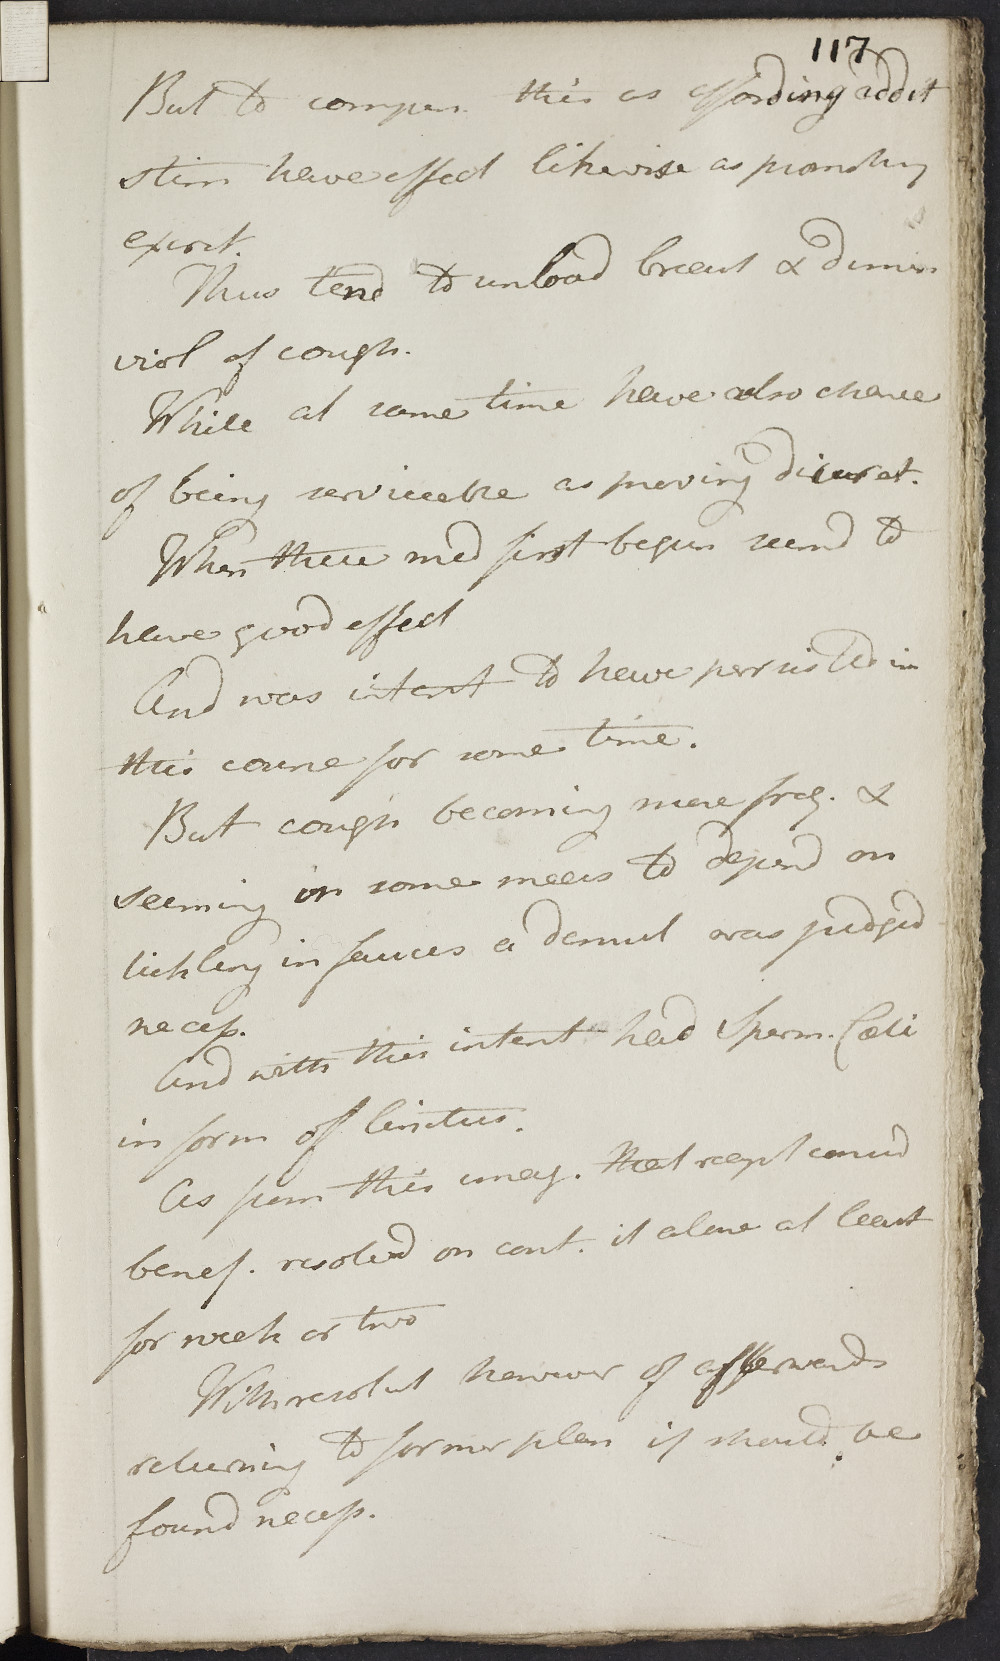 117
But to compen. this as affording addit
stim have effect likewise as promoting
expect.
Thus tend to unload breast & dimin
viol of cough.
While at same time have also chance
of being serviceable as proving diuret.
When these med first begun seemd to
have good effect
And was intent to have persisted in
this course for some time.
But cough becoming more freq. &
seeming in some meas to depend on
tickling in fauces a demul was judged
necess.
And with this intent had Sperm. Cæti
in form of linctus.
As from this uneq. recept
benef. resolvd on cont. it alone at least
for week or two
With resolut however of afterwards
returning to former plan if should be
found necess.